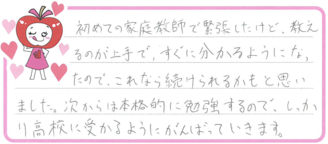 初めての家庭教師で緊張したけど、教え
るのが上手で、すぐに分かるようにな、
たので、これなら続けられるかもと思い
ました。次からは本格的に勉強するので、しっか
り高校に受かるようにがんばっていきます。